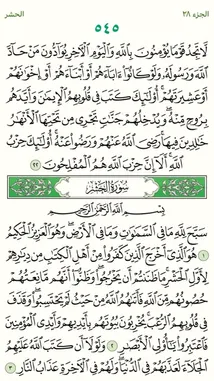 الجزء ٢٨ الحشر
٥٤٥
لَّا تَجِدُ قَوْمًا يُؤْمِنُونَ بِاللَّهِ وَالْيَوْمِ الْآخِرِ يُوَادُّونَ مَنْ حَادَّ
اللَّهَ وَرَسُولَهُ وَلَوْ كَانُوا آبَاءَهُمْ أَوْ أَبْنَاءَهُمْ أَوْ إِخْوَانَهُمْ
أَوْ عَشِيرَتَهُمْ أُولَٰئِكَ كَتَبَ فِي قُلُوبِهِمُ الْإِيمَانَ وَأَيَّدَهُم
بِرُوحٍ مِّنْهُ وَيُدْخِلُهُمْ جَنَّاتٍ تَجْرِي مِن تَحْتِهَا الْأَنْهَارُ
خَالِدِينَ فِيهَا رَضِيَ اللَّهُ عَنْهُمْ وَرَضُوا عَنْهُ أُولَٰئِكَ حِزْبُ
اللَّهِ أَلَا إِنَّ حِزْبَ اللَّهِ هُمُ الْمُفْلِحُونَ ٢٢
سُورَةُ الْحَشْرِ
بِسْمِ اللَّهِ الرَّحْمَٰنِ الرَّحِيمِ
سَبَّحَ لِلَّهِ مَا فِي السَّمَاوَاتِ وَمَا فِي الْأَرْضِ وَهُوَ الْعَزِيزُ الْحَكِيمُ
١ هُوَ الَّذِي أَخْرَجَ الَّذِينَ كَفَرُوا مِنْ أَهْلِ الْكِتَابِ مِن دِيَارِهِمْ
لِأَوَّلِ الْحَشْرِ مَا ظَنَنتُمْ أَن يَخْرُجُوا وَظَنُّوا أَنَّهُم مَّانِعَتُهُمْ
حُصُونُهُم مِّنَ اللَّهِ فَأَتَاهُمُ اللَّهُ مِنْ حَيْثُ لَمْ يَحْتَسِبُوا وَقَذَفَ
فِي قُلُوبِهِمُ الرُّعْبَ يُخْرِبُونَ بُيُوتَهُم بِأَيْدِيهِمْ وَأَيْدِي الْمُؤْمِنِينَ
فَاعْتَبِرُوا يَا أُولِي الْأَبْصَارِ ٢ وَلَوْلَا أَن كَتَبَ اللَّهُ عَلَيْهِمُ
الْجَلَاءَ لَعَذَّبَهُمْ فِي الدُّنْيَا وَلَهُمْ فِي الْآخِرَةِ عَذَابُ النَّارِ ٣